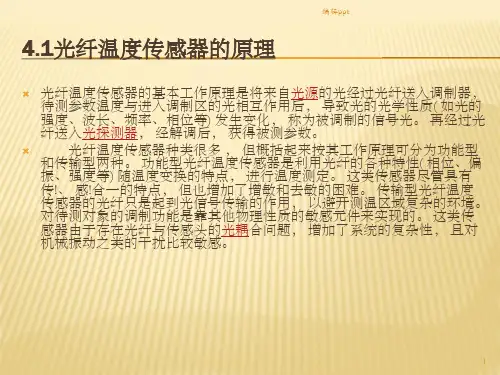 编辑ppt
4.1光纤温度传感器的原理
光纤温度传感器的基本工作原理是将来自光源的光经过光纤送入调制器，
待测参数温度与进入调制区的光相互作用后， 导致光的光学性质( 如光的
强度、波长、频率、相位等) 发生变化， 称为被调制的信号光。 再经过光
纤送入光探测器， 经解调后， 获得被测参数。
光纤温度传感器种类很多， 但概括起来按其工作原理可分为功能型
和传输型两种。 功能型光纤温度传感器是利用光纤的各种特性( 相位、偏
振、强度等) 随温度变换的特点， 进行温度测定。 这类传感器尽管具有
传!、 感!合一的特点， 但也增加了增敏和去敏的困难。 传输型光纤温度
传感器的光纤只是起到光信号传输的作用， 以避开测温区域复杂的环境。
对待测对象的调制功能是靠其他物理性质的敏感元件来实现的。 这类传
感器由于存在光纤与传感头的光耦合问题， 增加了系统的复杂性， 且对
机械振动之类的干扰比较敏感。
1